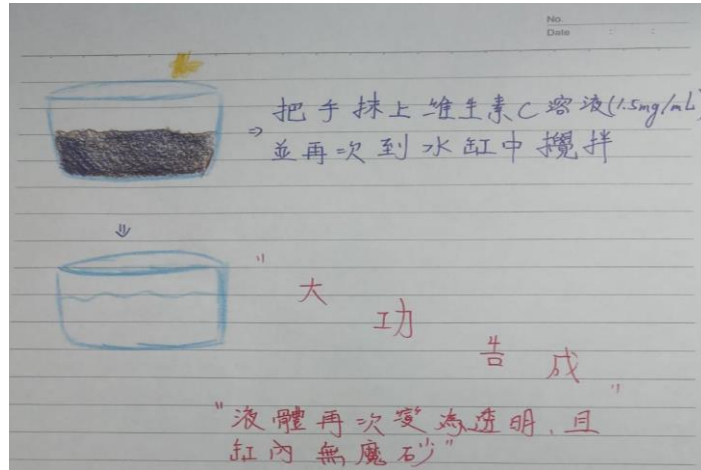 No.
Date : :
⇒ 把手抹上維生素C溶液(1.5mg/mL)
並再次到水缸中攪拌
⇓
"大功告成"
"液體再次變為透明、且
缸內無魔砂"